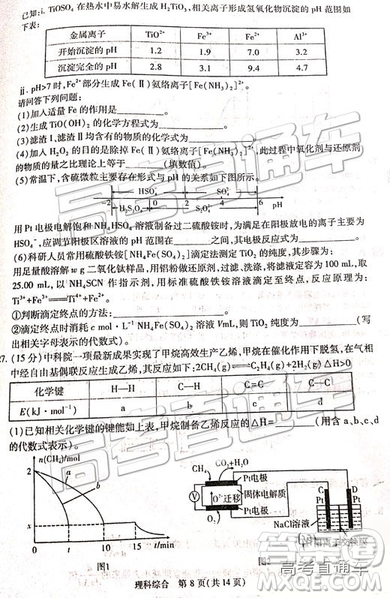 已知:i. TiOSO₄ 在热水中易水解生成 H₂TiO₃,相关离子形成氢氧化物沉淀的 pH 范围如
下表:
金属离子 TiO²⁺ Fe²⁺ Fe³⁺ Al³⁺
开始沉淀的 pH 1.2 1.9 7.0 3.2
沉淀完全的 pH 2.8 3.1 9.4 4.7
ii. pH>7 时,Fe²⁺ 部分生成 Fe(Ⅱ)氨络离子[Fe(NH₃)₂]²⁺.
请回答下列问题:
(1)加入适量 Fe 的作用是
(2)生成 TiO(OH)₂ 的化学方程式为
(3)滤渣Ⅰ,滤渣Ⅱ均含有的物质的化学式为
(4)加入 H₂O₂ 的目的是除掉 Fe(Ⅱ)氨络离子[Fe(NH₃)₂]²⁺,此过程中氧化剂与还原剂
的物质的量之比理论上等于 (填数值).
(5)常温下,含硫微粒主要存在形式与 pH 的关系如下图所示.
HSO₄⁻ SO₄²⁻
H₂S₂O₈
-2 0 2 4 6 pH
用 Pt 电极电解饱和 NH₄HSO₄ 溶液制备过二硫酸铵时,为满足在阳极放电的离子主要为
HSO₄⁻,应调节阳极区溶液的 pH 范围在 ,其阳极反应式为
(6)科研人员常用硫酸铁铵[NH₄Fe(SO₄)₂]滴定法测定 TiO₂ 的纯度,其步骤为:
用足量酸溶解 w g 二氧化钛样品,用铝粉做还原剂,过滤、洗涤,将滤液定容为 100 mL,取
25.00 mL,以 NH₄SCN 作指示剂,用标准硫酸铁铵溶液滴定至终点,反应原理为:
Ti³⁺+Fe³⁺══Ti⁴⁺+Fe²⁺
①判断滴定终点的方法:
②滴定终点时消耗 c mol·L⁻¹ NH₄Fe(SO₄)₂ 溶液 VmL,则 TiO₂ 纯度为 (写
出相关字母表示的代数式).
7. (15 分)中科院一项最新成果实现了甲烷高效生产乙烯,甲烷在催化作用下脱氢,在气相
中经自由基偶联反应生成乙烯,其反应如下:2CH₄(g)══C₂H₄(g)+2H₂(g) △H>0
化学键 H—H C—H C═C C—C
E(kJ·mol⁻¹) a b c d
(1)已知相关化学键的键能如上表,甲烷制备乙烯反应的△H= (用含 a、b、c、d
的代数式表示).
n(CH₄)/mol
2
a
b
x
0 t 10 15 t/min
图1
CH₄ CO₂+H₂O
Pt电极
固体电解质
O²⁻迁移
Pt电极
V
C D
Pt Pt
NaCl溶液
理科综合 第 8 页(共 14 页)
高考直通车
高考直通车
高考直通车